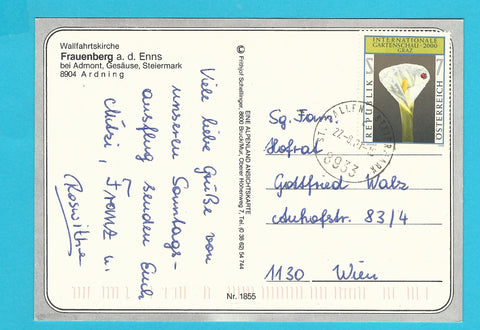 Wallfahrtskirche
Frauenberg a. d. Enns
bei Admont, Gesäuse, Steiermark
8904 Ardning
Viele liebe Grüße von
unserem Sonntags-
ausflug senden Euch
Franz u.
Roswitha
EINE ALPENLAND ANSICHTSKARTE
© Frithjof Schellinger, 8600 Bruck/Mur, Oberer Höhenweg 7, Tel. (0 38 62) 54 744
Nr. 1855
INTERNATIONALE
GARTENSCHAU · 2000
GRAZ
7
7
REPUBLIK
ÖSTERREICH
8933
Sg. Fam.
Hofrat
Gottfried Walz
Auhofstr. 83/4
1130 Wien